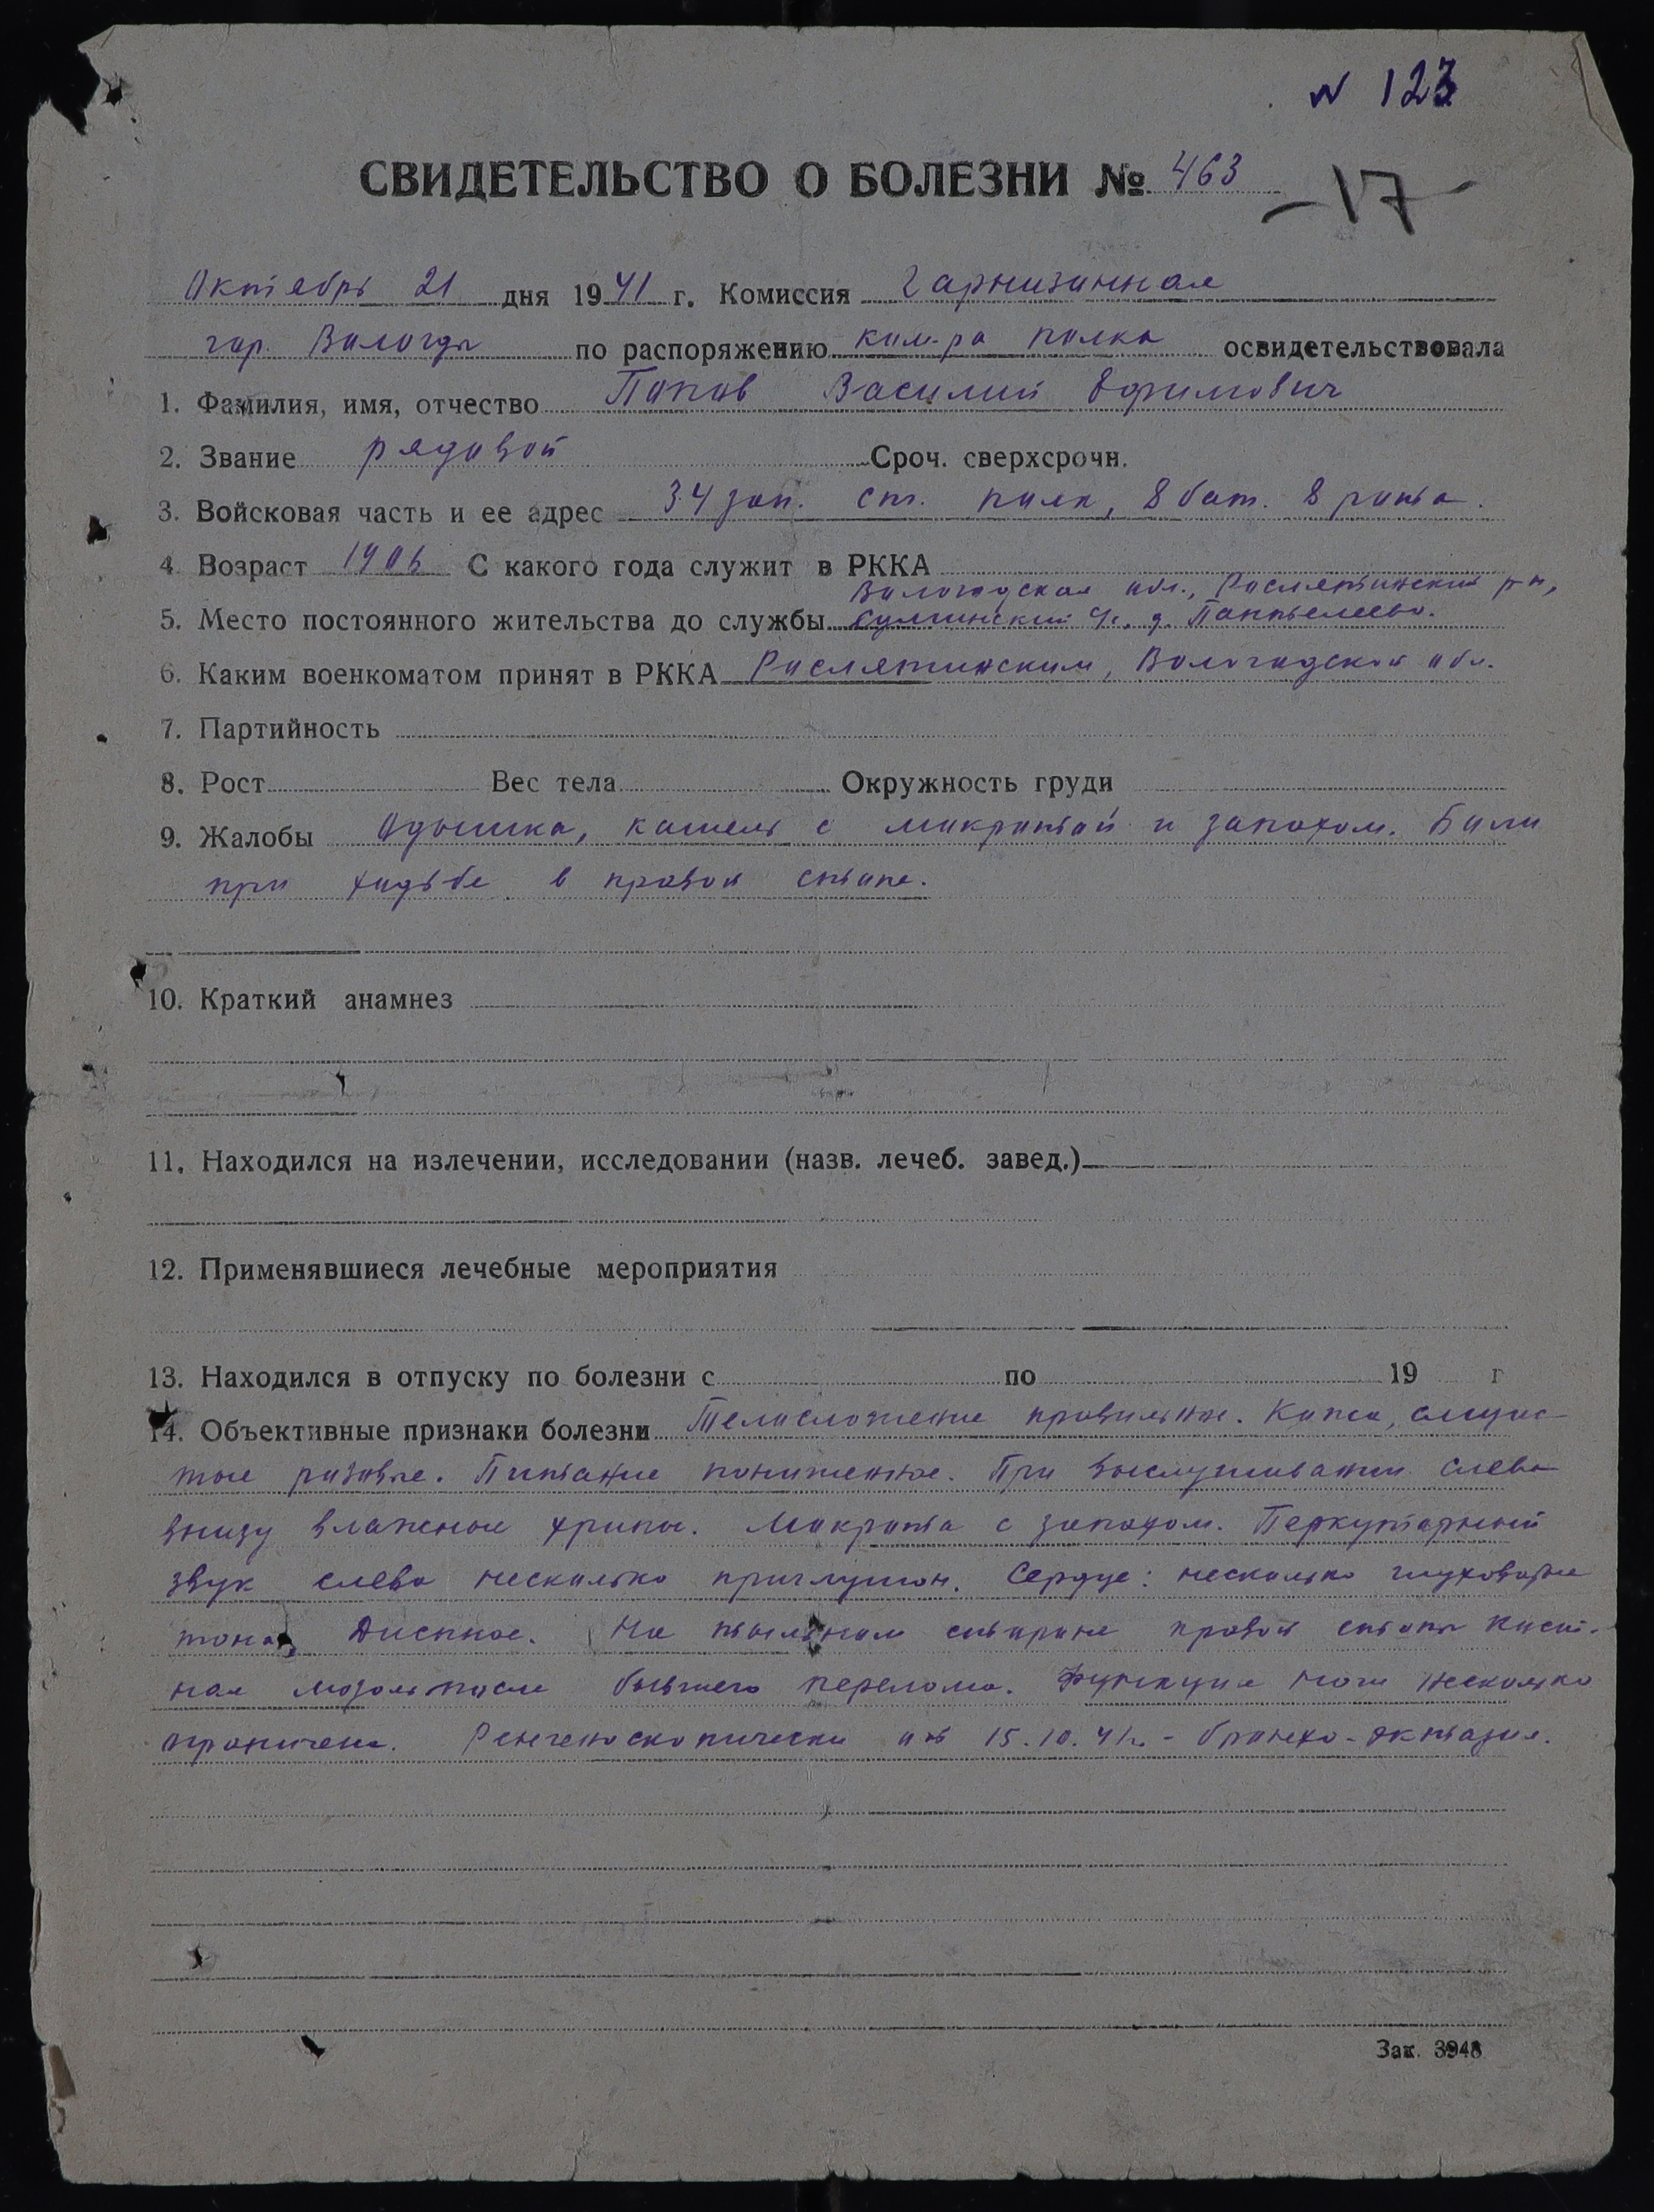 N 123
СВИДЕТЕЛЬСТВО О БОЛЕЗНИ № 463
-17-
Октябрь 21 дня 1941 г. Комиссия Гарнизонная
гор. Вологды по распоряжению ком-ра полка освидетельствовала
1. Фамилия, имя, отчество Попов Василий Ефимович
2. Звание рядовой Сроч. сверхсрочн.
3. Войсковая часть и ее адрес 34 зап. ст. полк, 8 бат. 8 рота.
4. Возраст 1906 С какого года служит в РККА
Вологодская обл., Рослятинский р-н,
5. Место постоянного жительства до службы д. Пантелеево.
6. Каким военкоматом принят в РККА Рослятинским, Вологодской обл.
7. Партийность
8. Рост Вес тела Окружность груди
9. Жалобы Одышка, кашель с мокротой и запахом. Боли
при ходьбе в правой стопе.
10. Краткий анамнез
11. Находился на излечении, исследовании (назв. лечеб. завед.)
12. Применявшиеся лечебные мероприятия
13. Находился в отпуску по болезни с по 19 г
14. Объективные признаки болезни Телосложение правильное. Кожа, слизис-
тые розовые. Питание пониженное. При выслушивании слева
внизу влажные хрипы. Мокрота с запахом. Перкуторный
звук слева несколько приглушон. Сердце: несколько глуховатые
тона. Диспное. На тыльном стороне правой стопы кост-
ная мозоль после бывшего перелома. Функция ноги несколько
ограничена. Ренгеноскопически от 15.10.41г. - бронхо-эктазия.
Зак. 3948